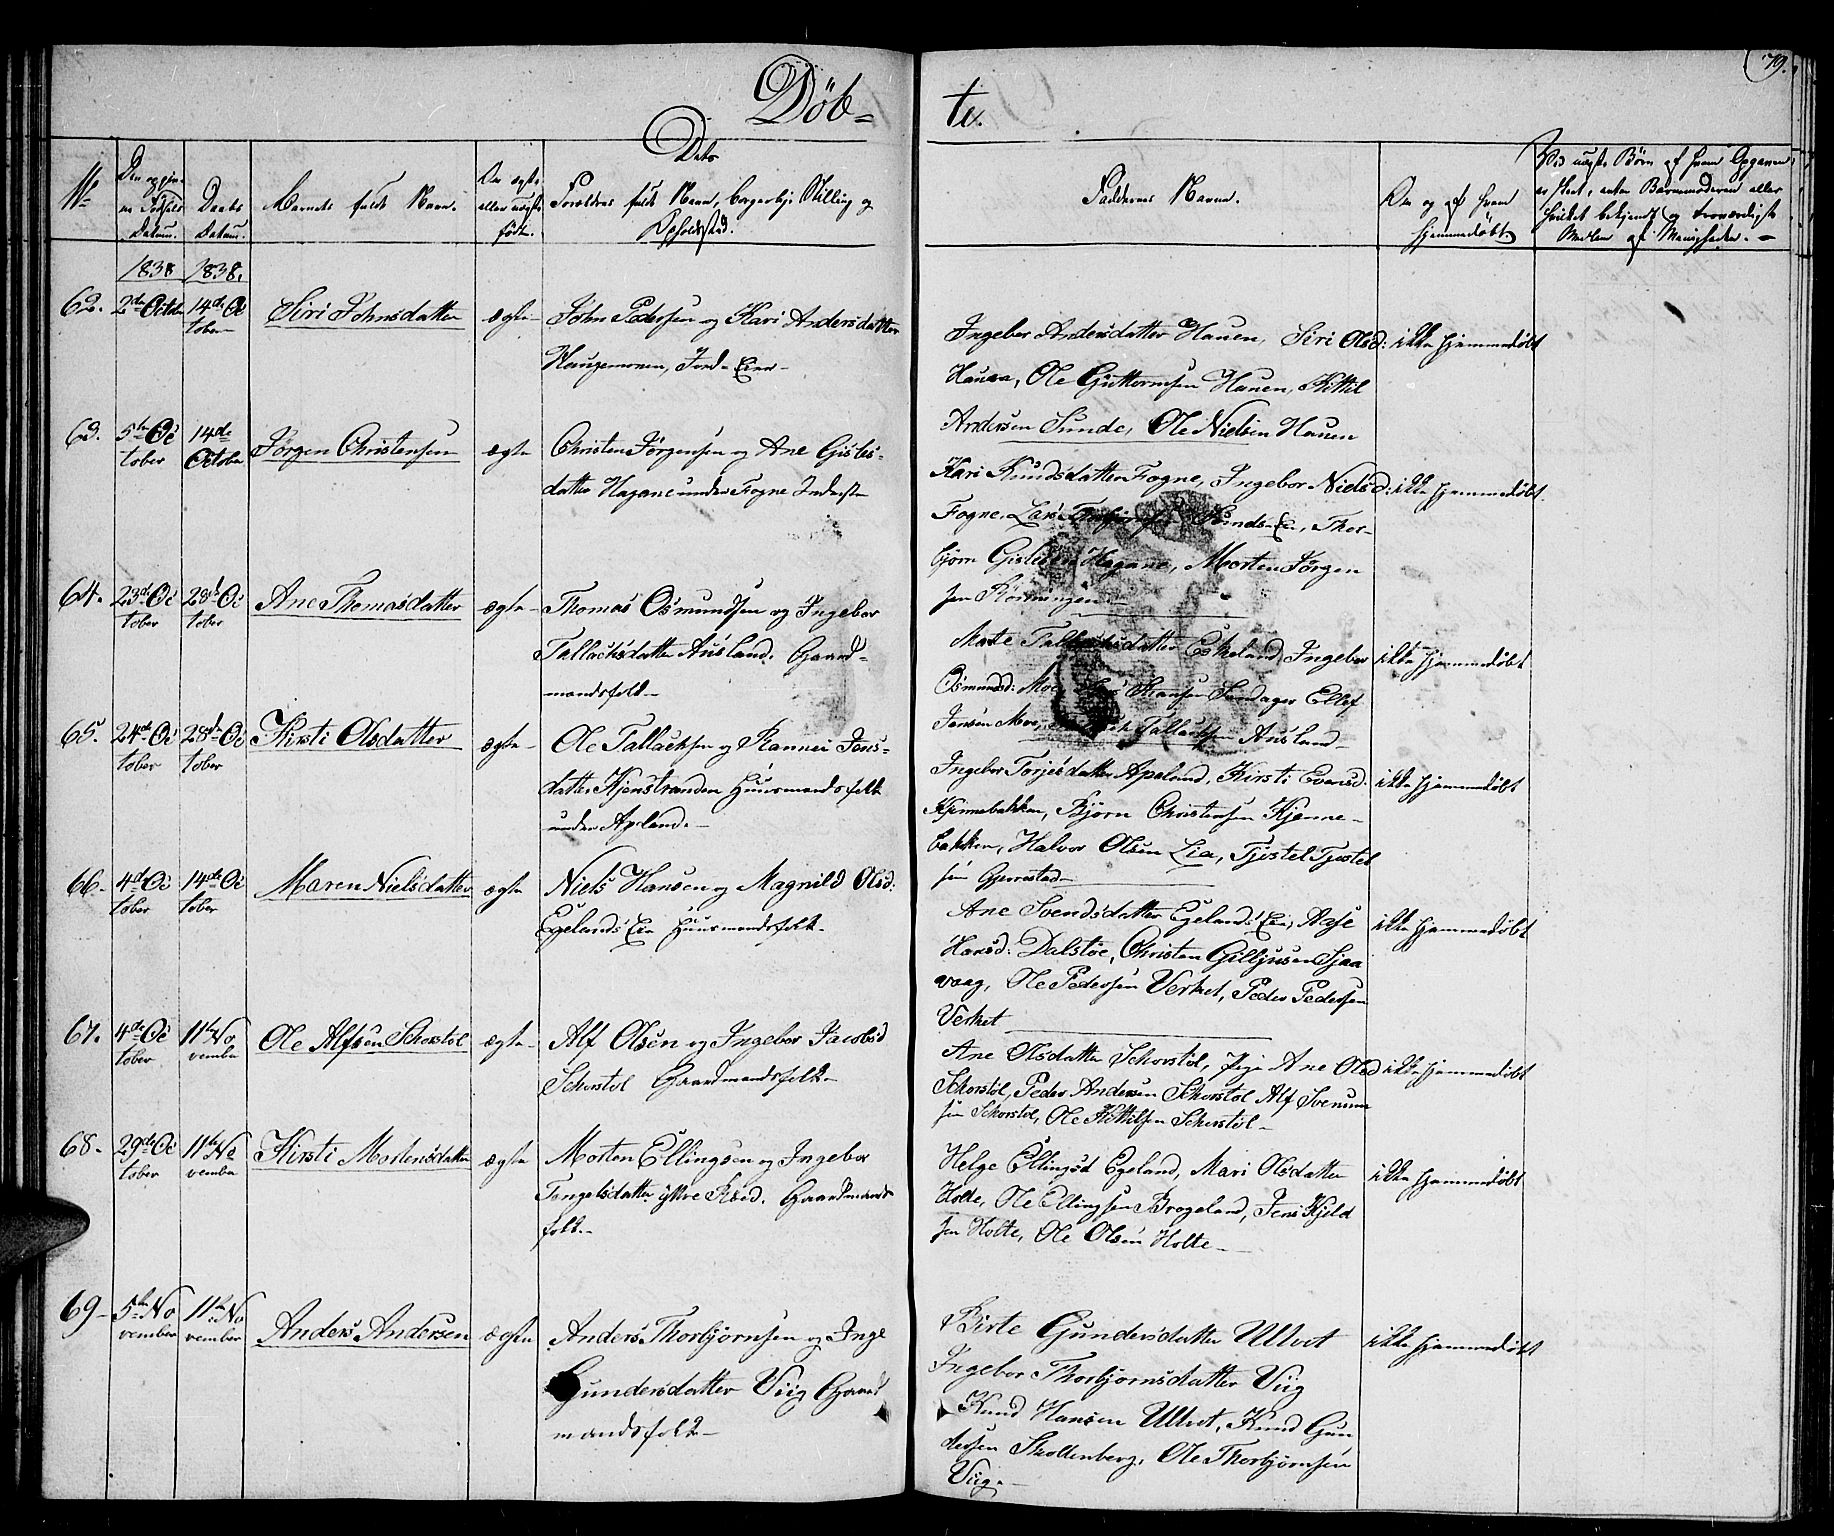 79.
Døb=
te.
No
Den opgiv-
ne Fødsels
Datum.
Daabs
Datum.
Barnets fulde Navn.
Om ægte
eller uægte
født.
Dets
Forældres fulde Navn, borgerlige Stilling og
Opholdssted.
Faddernes Navne.
Om og af hvem
hjemmedøbt.
Ved uægte Børn af hvem Opgaven
er skeet, enten Barnemoderen eller
hvilket bekjendt og troværdigt
Medlem af Menigheden.
1838 1838.
62. 2den Octob 14de Oc
tober
Siri Johnsdatter
ægte
John Pedersen og Kari Andersdatter
Haugemonen, Jord-Eier
Ingebor Andersdatter Hauen, Siri Olsd:
Hauen, Ole Guttormsen Hauen, Kittil
Andersen Sunde, Ole Nielsen Hauen
ikke hjemmedøbt
63. 5te Oc
tober
14de
October
Jørgen Christensen
ægte
Christen Jørgensen og Ane Gisles-
datter Hagane under Fogne Inderste
Kari Knudsdatter Fogne, Ingebor Nielsd:
Fogne, Lars Thor-
bjørn Hagane, Morten Jørgen
sen
ikke hjemmedøbt.
64. 23de Oc
tober
28de Oc
tober
Ane Thomasdatter
ægte
Thomas Osmundsen og Ingebor
Tallacksdatter Ausland. Gaard-
mandsfolk
Eskeland, Ingebor
Osmundsd: Moe, Ellef
Jensen Moe, Tallacksen Ausland
ikke hjemmedøbt
65. 24de Oc
tober
28de Oc
tober
Kirsti Olsdatter
ægte
Ole Tallacksen og Rannei Jens-
datter Kjenstranden Huusmandsfolk
under Apeland.
Ingebor Torjesdatter Apeland, Kirsti Evensd.
Kjennebakken, Bjørn Christensen Kjenne-
bakken, Halvor Olsen Lia, Tjostel Tjostel
sen Gjerrestad
ikke hjemmedøbt
66. 4de Oc
tober
14de Oc
tober
Maren Nielsdatter
ægte
Niels Hansen og Magnild Olsd:
Egelands Eie Huusmandsfolk.
Ane Svendsdatter Egelands Eie, Aase
Hansd: Dalstøe, Christen Gilljusen Sjaa
vaag, Ole Pedersen Verket, Peder Pedersen
Verket
ikke hjemmedøbt
67. 4de Oc
tober
11te No
vember
Ole Alfsen Schorstøl
ægte
Alf Olsen og Ingebor Jacobsd
Schorstøl Gaardmandsfolk
Ane Olsdatter Schorstøl, Pige Ane Olsd
Schorstøl, Peder Andersen Schorstøl Alf Svenum
sen Schorstøl, Ole Kittilsen Schorstøl
ikke hjemmedøbt
68. 29de Oc
tober
11te No
vember
Kirsti Mortensdatter
ægte
Morten Ellingsen og Ingebor
Tengelsdatter yttre Røed. Gaardmands
folk.
Helge Ellingsd Egeland, Mari Olsdatter
Holte, Ole Ellingsen Brogeland, Jens Kjeld
sen Holte, Ole Olsen Holte
ikke hjemmedøbt
69 5te No
vember
11te No
vember
Anders Andersen
ægte
Anders Thorbjørnsen og Inge
Gundersdatter Viig Gaard
mandsfolk
Birte Gundersdatter Ulltvet
Ingebor Thorbjørnsdatter Viig
Knud Hansen Ulltvet, Knud Gun
dersen Skoldenborg, Ole Thorbjørnsen
Viig.
ikke hjemmedøbt